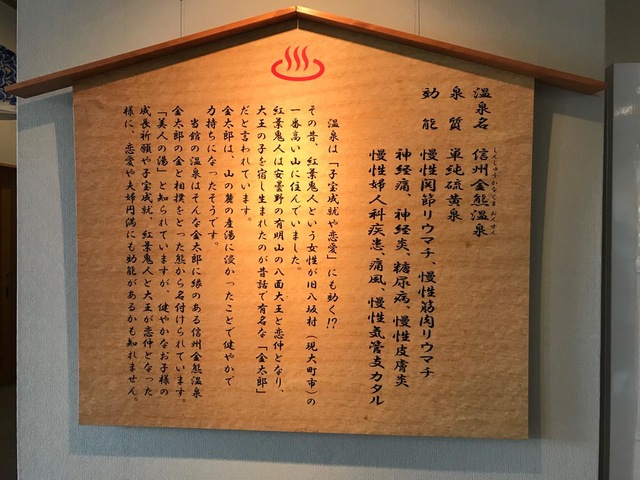 温泉名　信州金熊温泉
しんしゅうかなくまおんせん
泉　質　単純硫黄泉
効　能　慢性関節リウマチ、慢性筋肉リウマチ
神経痛、神経炎、糖尿病、慢性皮膚炎
慢性婦人科疾患、痛風、慢性気管支カタル
温泉は「子宝成就や恋愛」にも効く!?
その昔、紅葉鬼人という女性が旧八坂村(現大町市)の
一番高い山に住んでいました。
紅葉鬼人は安曇野の有明山の八面大王と恋仲となり、
大王の子を宿し生まれたのが昔話で有名な「金太郎」
だと言われています。
金太郎は、山の麓の産湯に浸かったことで健やかで
力持ちになったそうです。
当館の温泉はそんな金太郎に縁のある信州金熊温泉
金太郎の金と相撲をとった熊から名付けられています。
「美人の湯」と知られていますが、健やかなお子様の
成長祈願や子宝成就、紅葉鬼人と大王が恋仲となった
様に、恋愛や夫婦円満にも効能があるかも知れません。